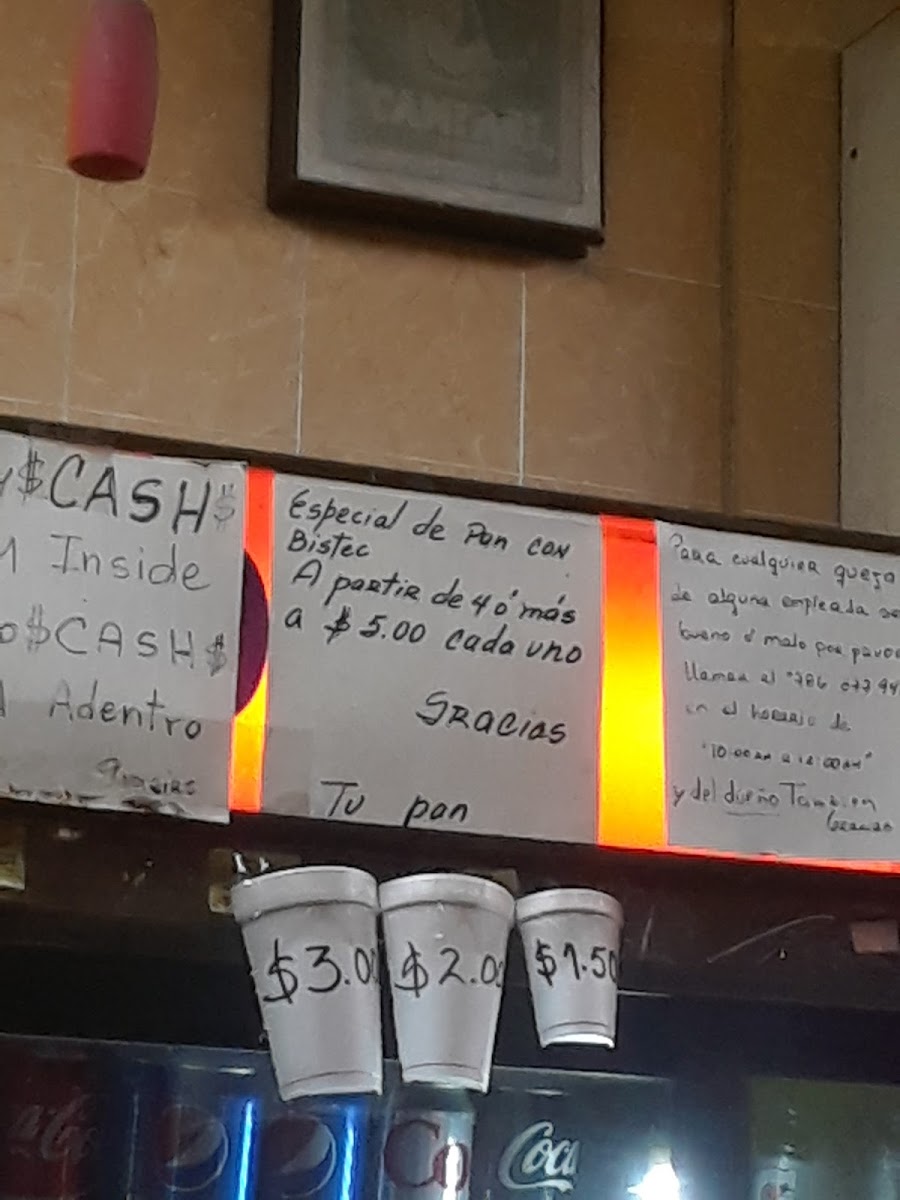 $CASH$
Inside
$CASH$
Adentro
Especial de Pan con
Bistec
A partir de 4 ó más
a $5.00 cada uno
Gracias
Tu pan
Para cualquier queja
de alguna empleada
bueno ó malo por
llamar al
en el horario de
y del dueño Tambien
Gracias
$3.00
$2.0
$1.50
Coca